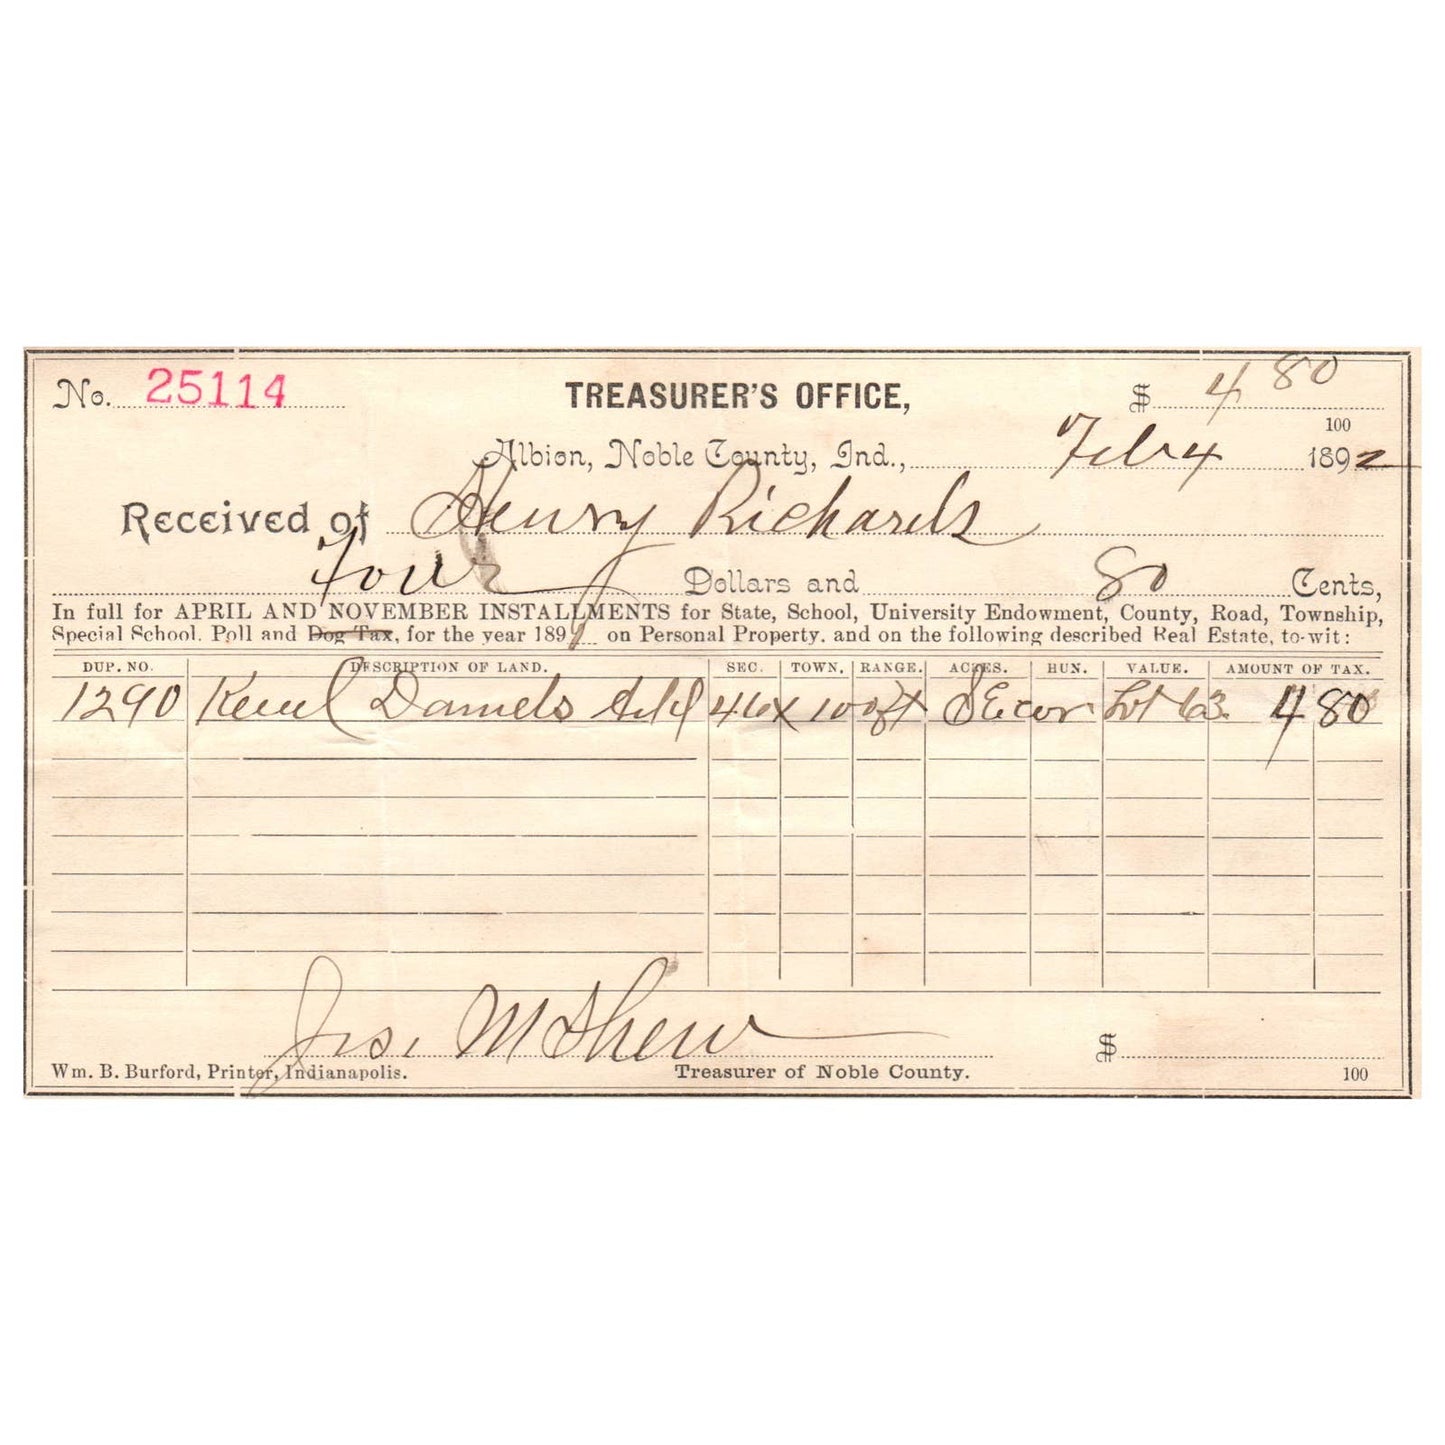 No. 25114 TREASURER'S OFFICE, $ 4 80
100
Albion, Noble County, Ind., Feb 4 1892
Received of Henry Richards
Four Dollars and 80 Cents,
In full for APRIL AND NOVEMBER INSTALLMENTS for State, School, University Endowment, County, Road, Township,
Special School. Poll and Dog Tax, for the year 1891 on Personal Property. and on the following described Real Estate, to-wit:
DUP. NO. DESCRIPTION OF LAND. SEC. TOWN. RANGE. ACRES. HUN. VALUE. AMOUNT OF TAX.
1290 Daniels Add 46x100ft SE cor Lot 63 4 80
Jos. M Shew $
Wm. B. Burford, Printer, Indianapolis. Treasurer of Noble County. 100